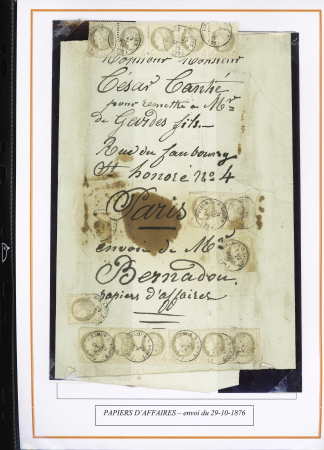 Monsieur Monsieur
César Cantié
pour remettre a Mr
de Gardes fils
Rue du faubourg
St honoré No 4
Paris
envoi de Mr
Bernadou.
papiers d'affaires
PAPIERS D'AFFAIRES – envoi du 29-10-1876